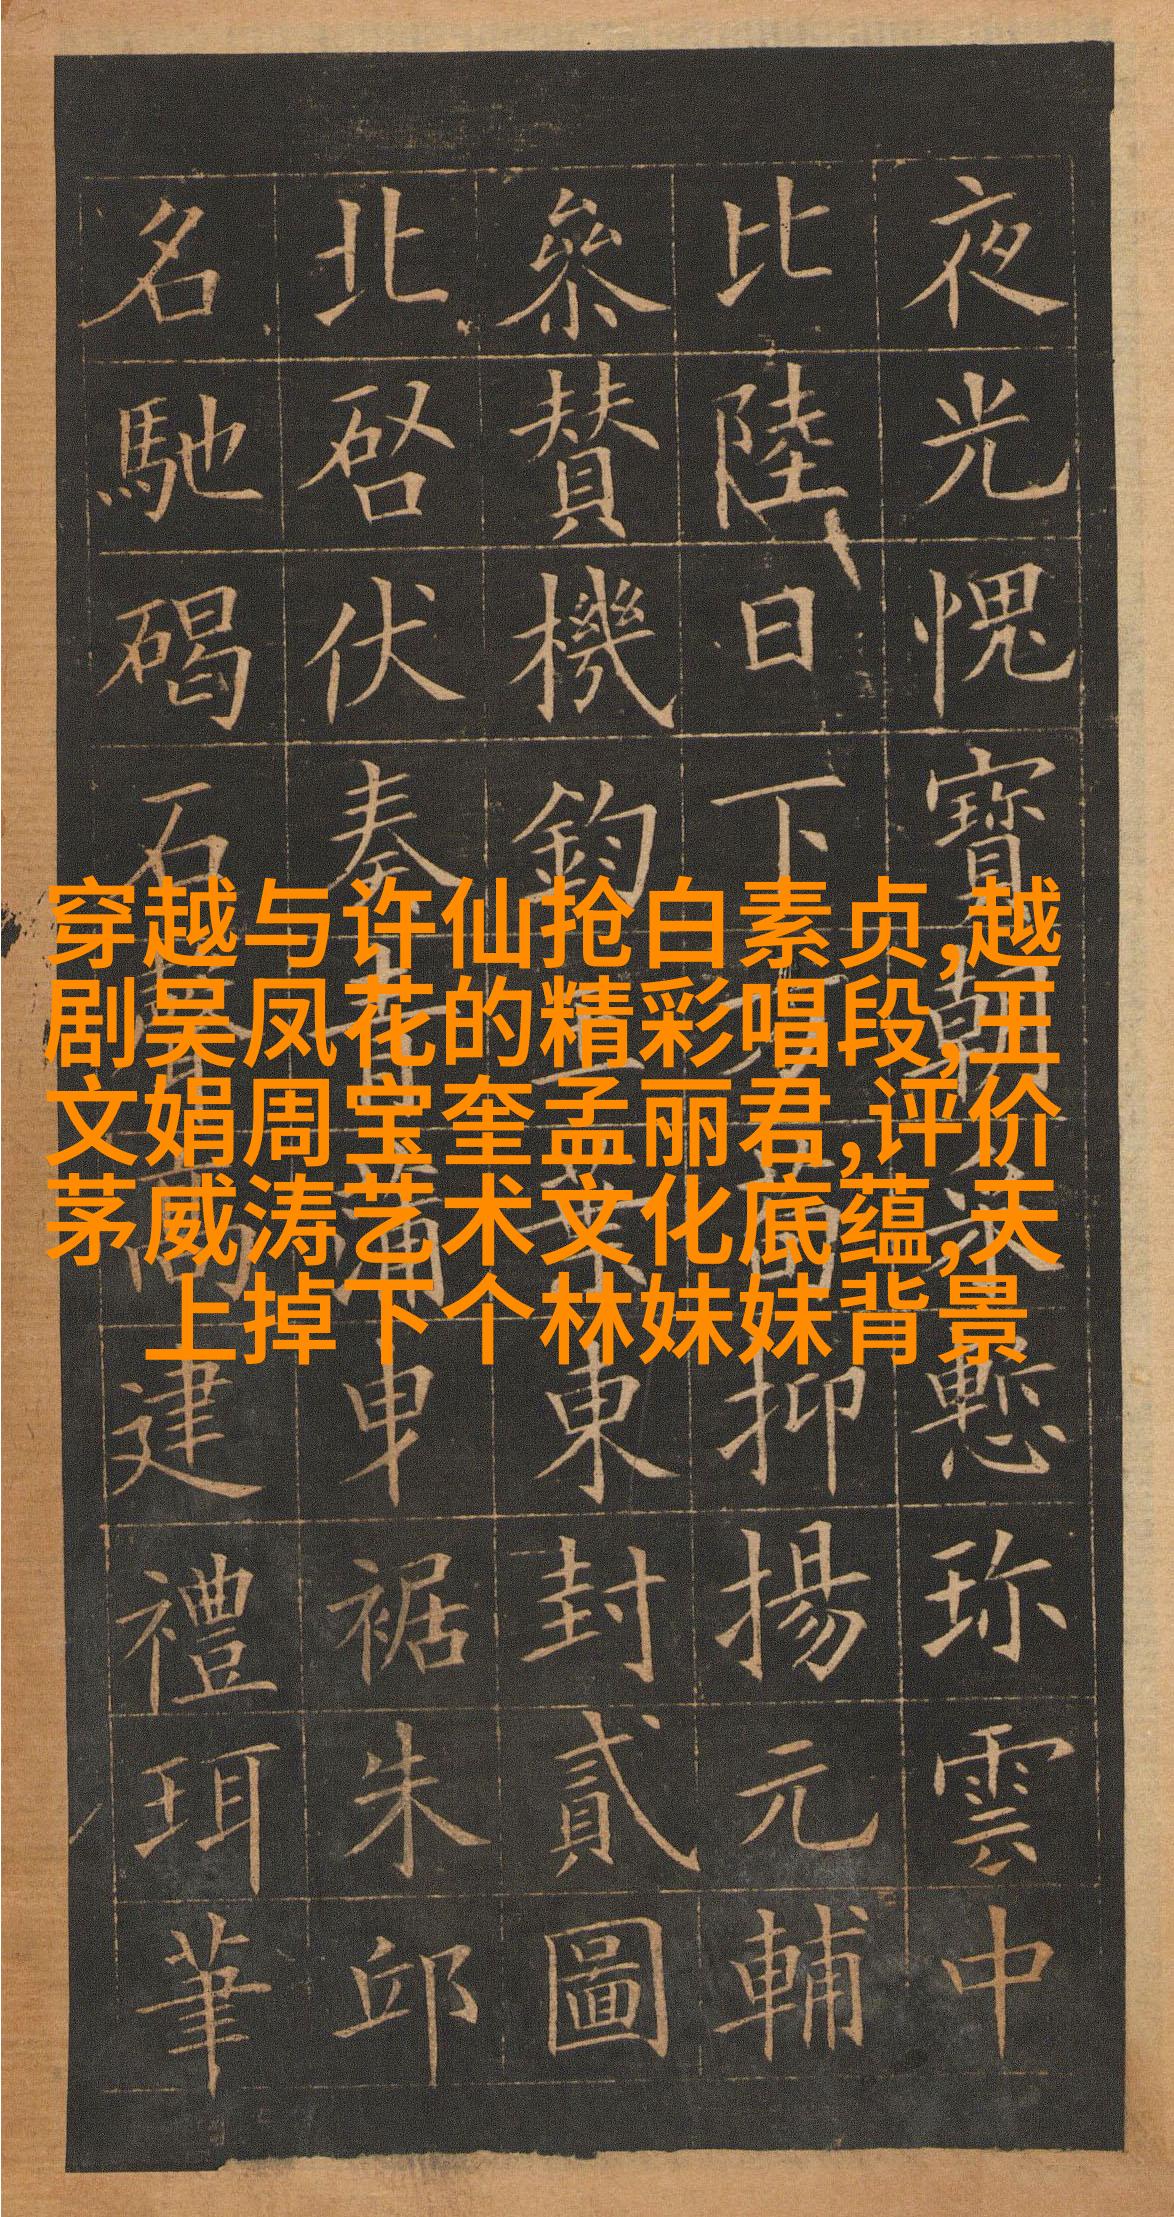 夜光愧寶朝慙珎雲中
比陸日下抑揚元輔
叅賛機鈞東封貳圖
北啓伏奏曳裾朱邱
名馳碣石建禮珥筆
穿越与许仙抢白素贞,越
剧吴凤花的精彩唱段,王
文娟周宝奎孟丽君,评价
茅威涛艺术文化底蕴,天
上掉下个林妹妹背景